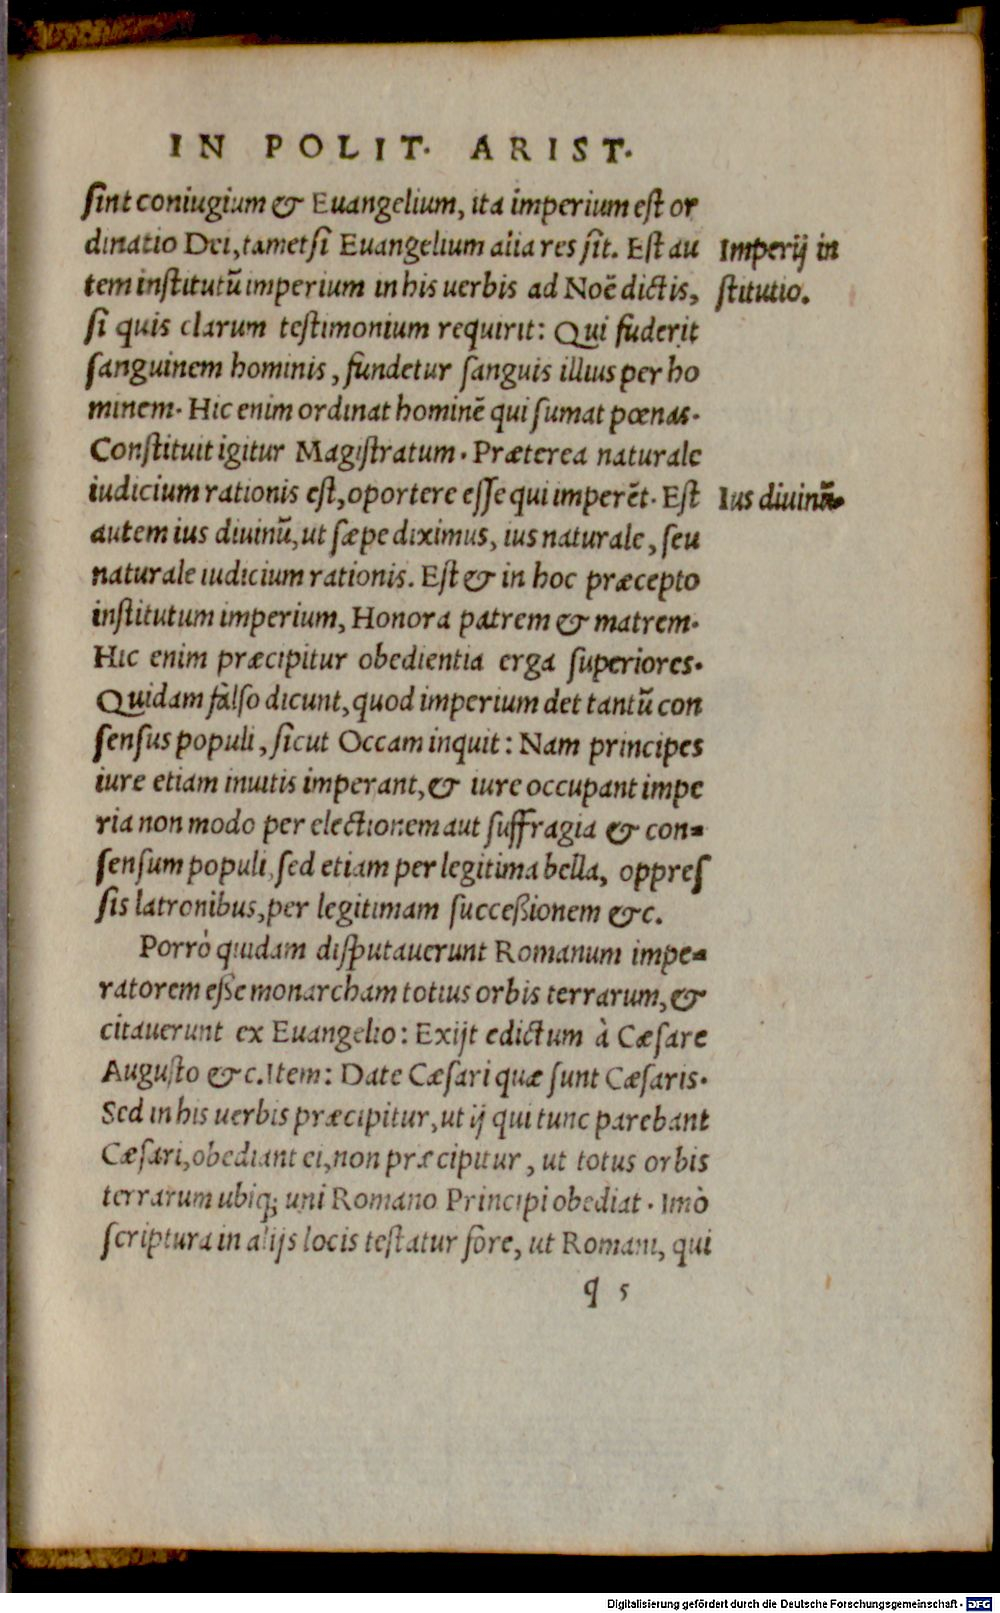 IN POLIT. ARIST.
ſint coniugium & Euangelium, ita imperium eſt or
dinatio Dei, tametſi Euangelium alia res ſit. Eſt au
Imperij in
tem inſtitutũ imperium in his uerbis ad Noẽ dictis,
ſtitutio.
ſi quis clarum teſtimonium requirit: Qui fuderit
ſanguinem hominis, fundetur ſanguis illius per ho
minem. Hic enim ordinat hominẽ qui ſumat pœnas.
Conſtituit igitur Magiſtratum. Præterea naturale
iudicium rationis eſt, oportere eſſe qui imperẽt. Eſt
Ius diuinũ.
autem ius diuinũ, ut ſæpe diximus, ius naturale, ſeu
naturale iudicium rationis. Eſt & in hoc præcepto
inſtitutum imperium, Honora patrem & matrem.
Hic enim præcipitur obedientia erga ſuperiores.
Quidam falſo dicunt, quod imperium det tantũ con
ſenſus populi, ſicut Occam inquit: Nam principes
iure etiam inuitis imperant, & iure occupant impe
ria non modo per electionem aut ſuffragia & con=
ſenſum populi, ſed etiam per legitima bella, oppreſ
ſis latronibus, per legitimam succeßionem &c.
Porrò quidam diſputauerunt Romanum impe=
ratorem eße monarcham totius orbis terrarum, &
citauerunt ex Euangelio: Exijt edictum à Cæſare
Auguſto &c. Item: Date Cæſari quæ ſunt Cæſaris.
Sed in his uerbis præcipitur, ut ij qui tunc parebant
Cæſari, obediant ei, non præcipitur, ut totus orbis
terrarum ubiq; uni Romano Principi obediat. Imò
ſcriptura in alijs locis teſtatur fore, ut Romani, qui
q 5
Digitalisierung gefördert durch die Deutsche Forschungsgemeinschaft - DFG